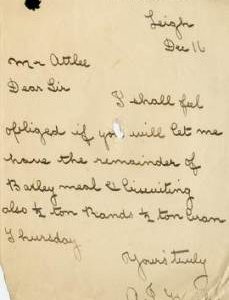 Leigh
Dec 16
Mr Attlee
Dear Sir
I shall feel
obliged if you will let me
have the remainder of
Barley meal &
also ½ ton ½ ton
Thursday
Yours truly